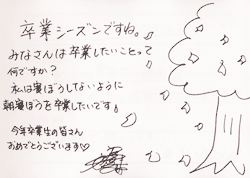 卒業シーズンですね。
みなさんは卒業したいことって
何ですか?
私は寝ぼうしないように
朝寝ぼうを卒業したいです!
今年卒業生の皆さん
おめでとうございます♡